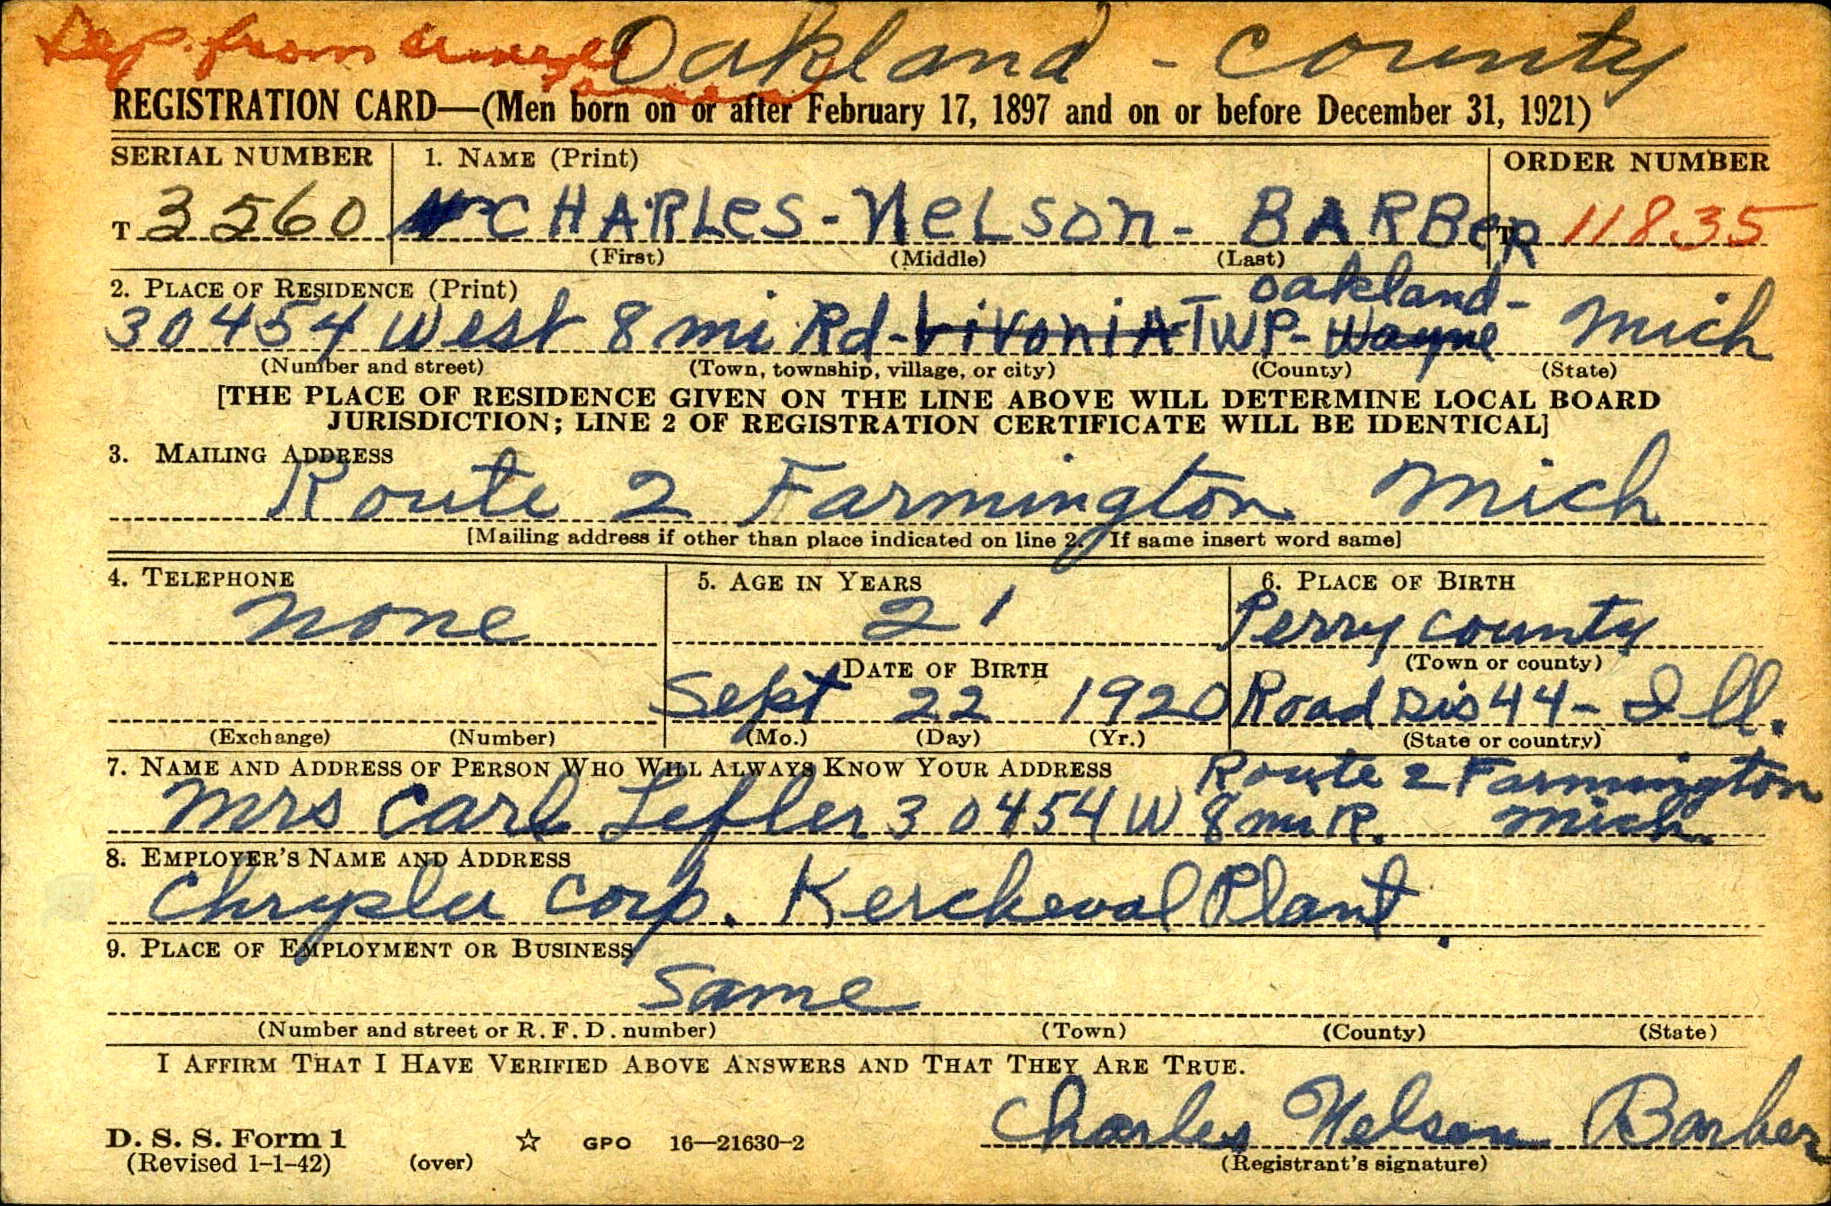 Dep. from Oakland - County
REGISTRATION CARD—(Men born on or after February 17, 1897 and on or before December 31, 1921)
SERIAL NUMBER 1. NAME (Print) ORDER NUMBER
T 3560 CHARLES - NELSON - BARBER T 11835
(First) (Middle) (Last)
2. PLACE OF RESIDENCE (Print) Oakland -
30454 West 8 mi Rd - Livonia TWP - Wayne Mich
(Number and street) (Town, township, village, or city) (County) (State)
[THE PLACE OF RESIDENCE GIVEN ON THE LINE ABOVE WILL DETERMINE LOCAL BOARD
JURISDICTION; LINE 2 OF REGISTRATION CERTIFICATE WILL BE IDENTICAL]
3. MAILING ADDRESS
Route 2 Farmington Mich
[Mailing address if other than place indicated on line 2. If same insert word same]
4. TELEPHONE 5. AGE IN YEARS 6. PLACE OF BIRTH
none 21 Perry county
DATE OF BIRTH (Town or county)
Sept 22 1920 Road Dis 44 - Ill.
(Exchange) (Number) (Mo.) (Day) (Yr.) (State or country)
7. NAME AND ADDRESS OF PERSON WHO WILL ALWAYS KNOW YOUR ADDRESS Route 2 Farmington
Mrs Carl Lefler 30454 W 8 mi R. Mich.
8. EMPLOYER'S NAME AND ADDRESS
Chrysler Corp. Kercheval Plant
9. PLACE OF EMPLOYMENT OR BUSINESS
Same
(Number and street or R. F. D. number) (Town) (County) (State)
I AFFIRM THAT I HAVE VERIFIED ABOVE ANSWERS AND THAT THEY ARE TRUE.
Charles Nelson Barber
D. S. S. Form 1 ☆ GPO 16—21630-2
(Revised 1-1-42) (over) (Registrant's signature)